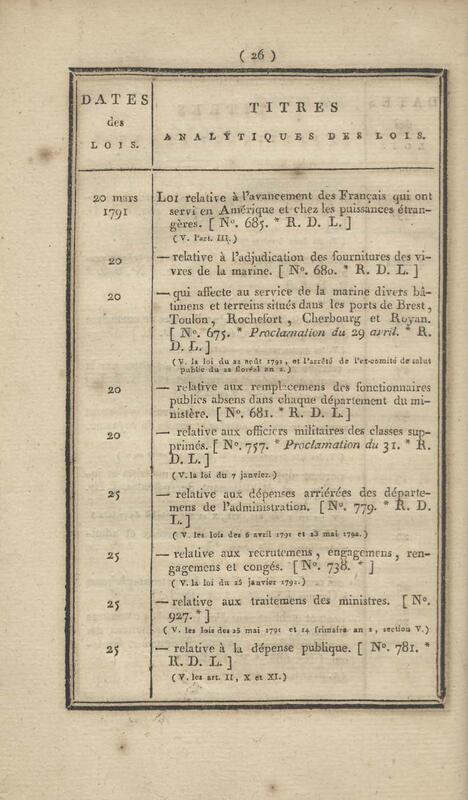 ( 26 )
DATES
des
LOIS.
TITRES
ANALYTIQUES DES LOIS.
20 mars
1791
Loi relative à l'avancement des Français qui ont
servi en Amérique et chez les puissances étran-
gères. [ Nº. 685. * R. D. L. ]
( V. l'art. III. )
20
— relative à l'adjudication des fournitures des vi-
vres de la marine. [ Nº. 680. * R. D. L. ]
20
— qui affecte au service de la marine divers bâ-
timens et terreins situés dans les ports de Brest,
Toulon, Rochefort, Cherbourg et Royan.
[ Nº. 675. * Proclamation du 29 avril. * R.
D. L. ]
( V. la loi du 22 août 1791, et l'arrêté de l'ex-comité de salut
public du 22 floréal an 2. )
20
— relative aux remplacemens des fonctionnaires
publics absens dans chaque département du mi-
nistère. [ Nº. 681. * R. D. L. ]
20
— relative aux officiers militaires des classes sup-
primés. [ Nº. 757. * Proclamation du 31. * R.
D. L. ]
( V. la loi du 7 janvier. )
25
— relative aux dépenses arriérées des départe-
mens de l'administration. [ Nº. 779. * R. D.
L. ]
( V. les lois des 6 avril 1791 et 23 mai 1792. )
25
— relative aux recrutemens, engagemens, ren-
gagemens et congés. [ Nº. 738. * ]
( V. la loi du 25 janvier 1792. )
25
— relative aux traitemens des ministres. [ Nº.
927. * ]
( V. les lois des 25 mai 1791 et 14 frimaire an 2, section V. )
25
— relative à la dépense publique. [ Nº. 781. *
R. D. L. ]
( V. les art. II, X et XI. )